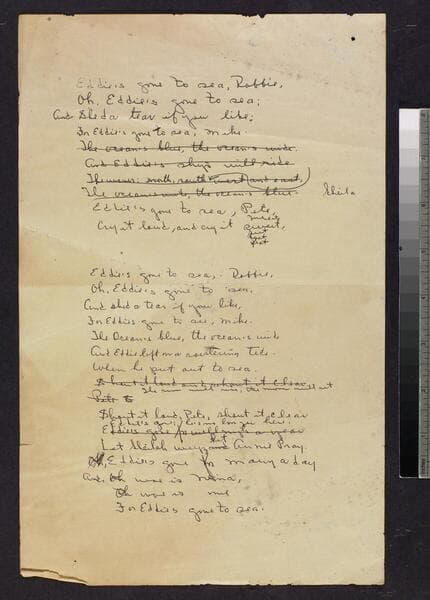 Eddie's gone to sea, Robbie,
Oh, Eddie's gone to sea;
And shed a tear if you like;
For Eddie's gone to sea, Mike.
The ocean's blue, the ocean's wide
And Eddie's ship will ride
The waves: north, south west and east,
The ocean's wide, the ocean's blue. Sheila
Eddie's gone to sea, Pete,
Cry it loud, and cry it sweet,
Eddie's gone to sea, Robbie,
Oh, Eddie's gone to sea.
And shed a tear if you like,
For Eddie's gone to sea, Mike.
The Ocean's blue, the ocean's wide
And Eddie left on a tide.
When he put out to sea.
Shout it loud and shout it clear
Pete
Shout it loud, Pete, shout it clear
Eddie's
Let weep, let Annie Pray.
Oh, Eddie's gone for many a day
And, Oh woe is Nona,
Oh woe is me
For Eddie's gone to sea.